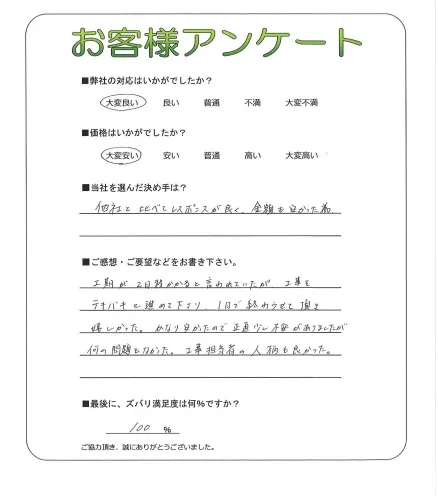 お客様アンケート
■弊社の対応はいかがでしたか?
大変良い 良い 普通 不満 大変不満
■価格はいかがでしたか?
大変安い 安い 普通 高い 大変高い
■当社を選んだ決め手は?
他社と比べてレスポンスが良く、金額も安かった為
■ご感想・ご要望などをお書き下さい。
工期が2日程かかると言われていたが、工事を
テキパキと進めて下さり、1日で終わらせて頂き
嬉しかった。かなり安かったので正直少し不安がありましたが
何の問題もなかった。工事担当者の人柄も良かった。
■最後に、ズバリ満足度は何%ですか?
100 %
ご協力頂き、誠にありがとうございました。